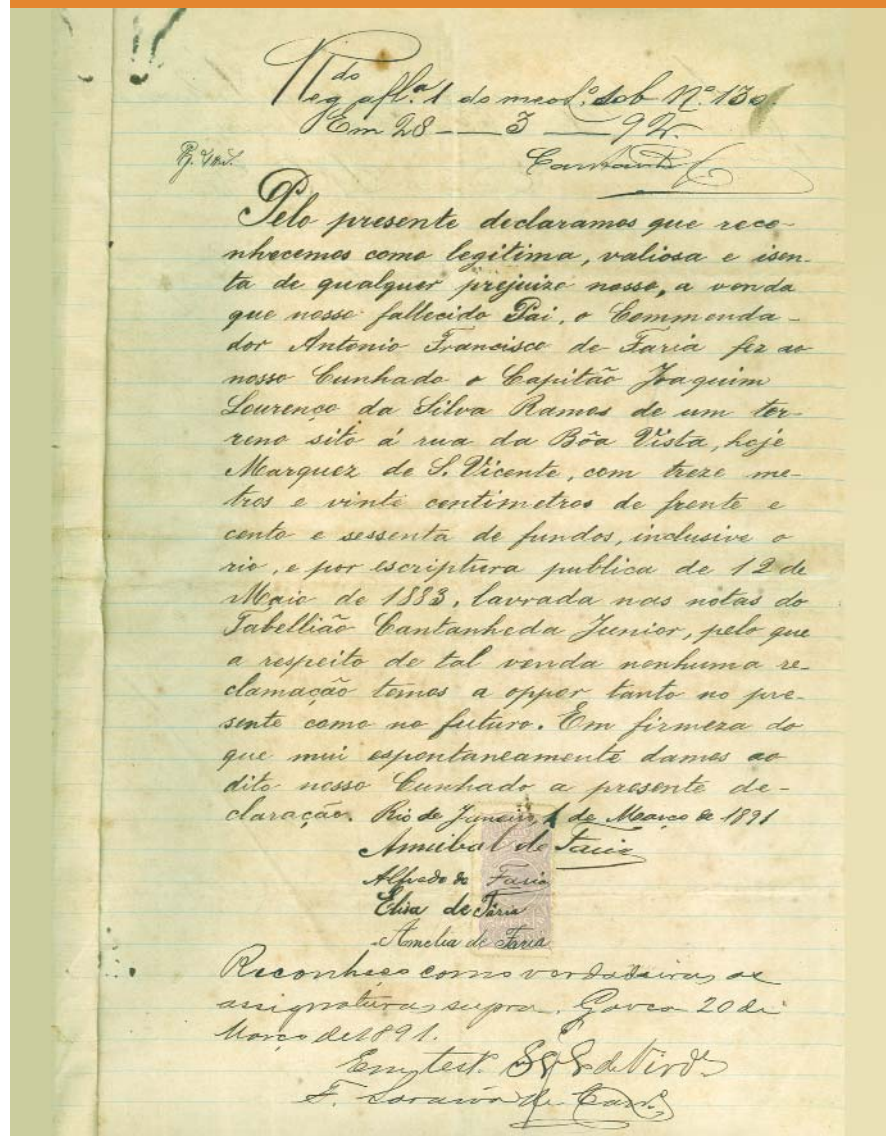 do
Reg afl.ª 1 do mesol.º sob Nº 130.
Em 28 — 3 — 92.
Pelo presente declaramos que reco-
nhecemos como legitima, valiosa e isen-
ta de qualquer prejuizo nosso, a venda
que nosso fallecido Pai, o Commenda-
dor Antonio Francisco de Faria fez ao
nosso Cunhado o Capitão Joaquim
Lourenço da Silva Ramos de um ter-
reno sito á rua da Bôa Vista, hoje
Marquez de S. Vicente, com treze me-
tros e vinte centimetros de frente e
cento e sessenta de fundos, inclusive o
rio, e por escriptura publica de 12 de
Maio de 1883, lavrada nas notas do
Tabellião Cantanheda Junior, pelo que
a respeito de tal venda nenhuma re-
clamação temos a oppor tanto no pre-
sente como no futuro. Em firmeza do
que mui espontaneamente damos ao
dito nosso Cunhado a presente de-
claração. Rio de Janeiro, 1 de Março de 1891
Annibal de Faria
Alfredo de Faria
Elisa de Faria
Amelia de Faria
Reconheço como verdadeiras as
assignaturas supra. Gavea 20 de
Março de 1891.
Em test.º de Verd.e
F.